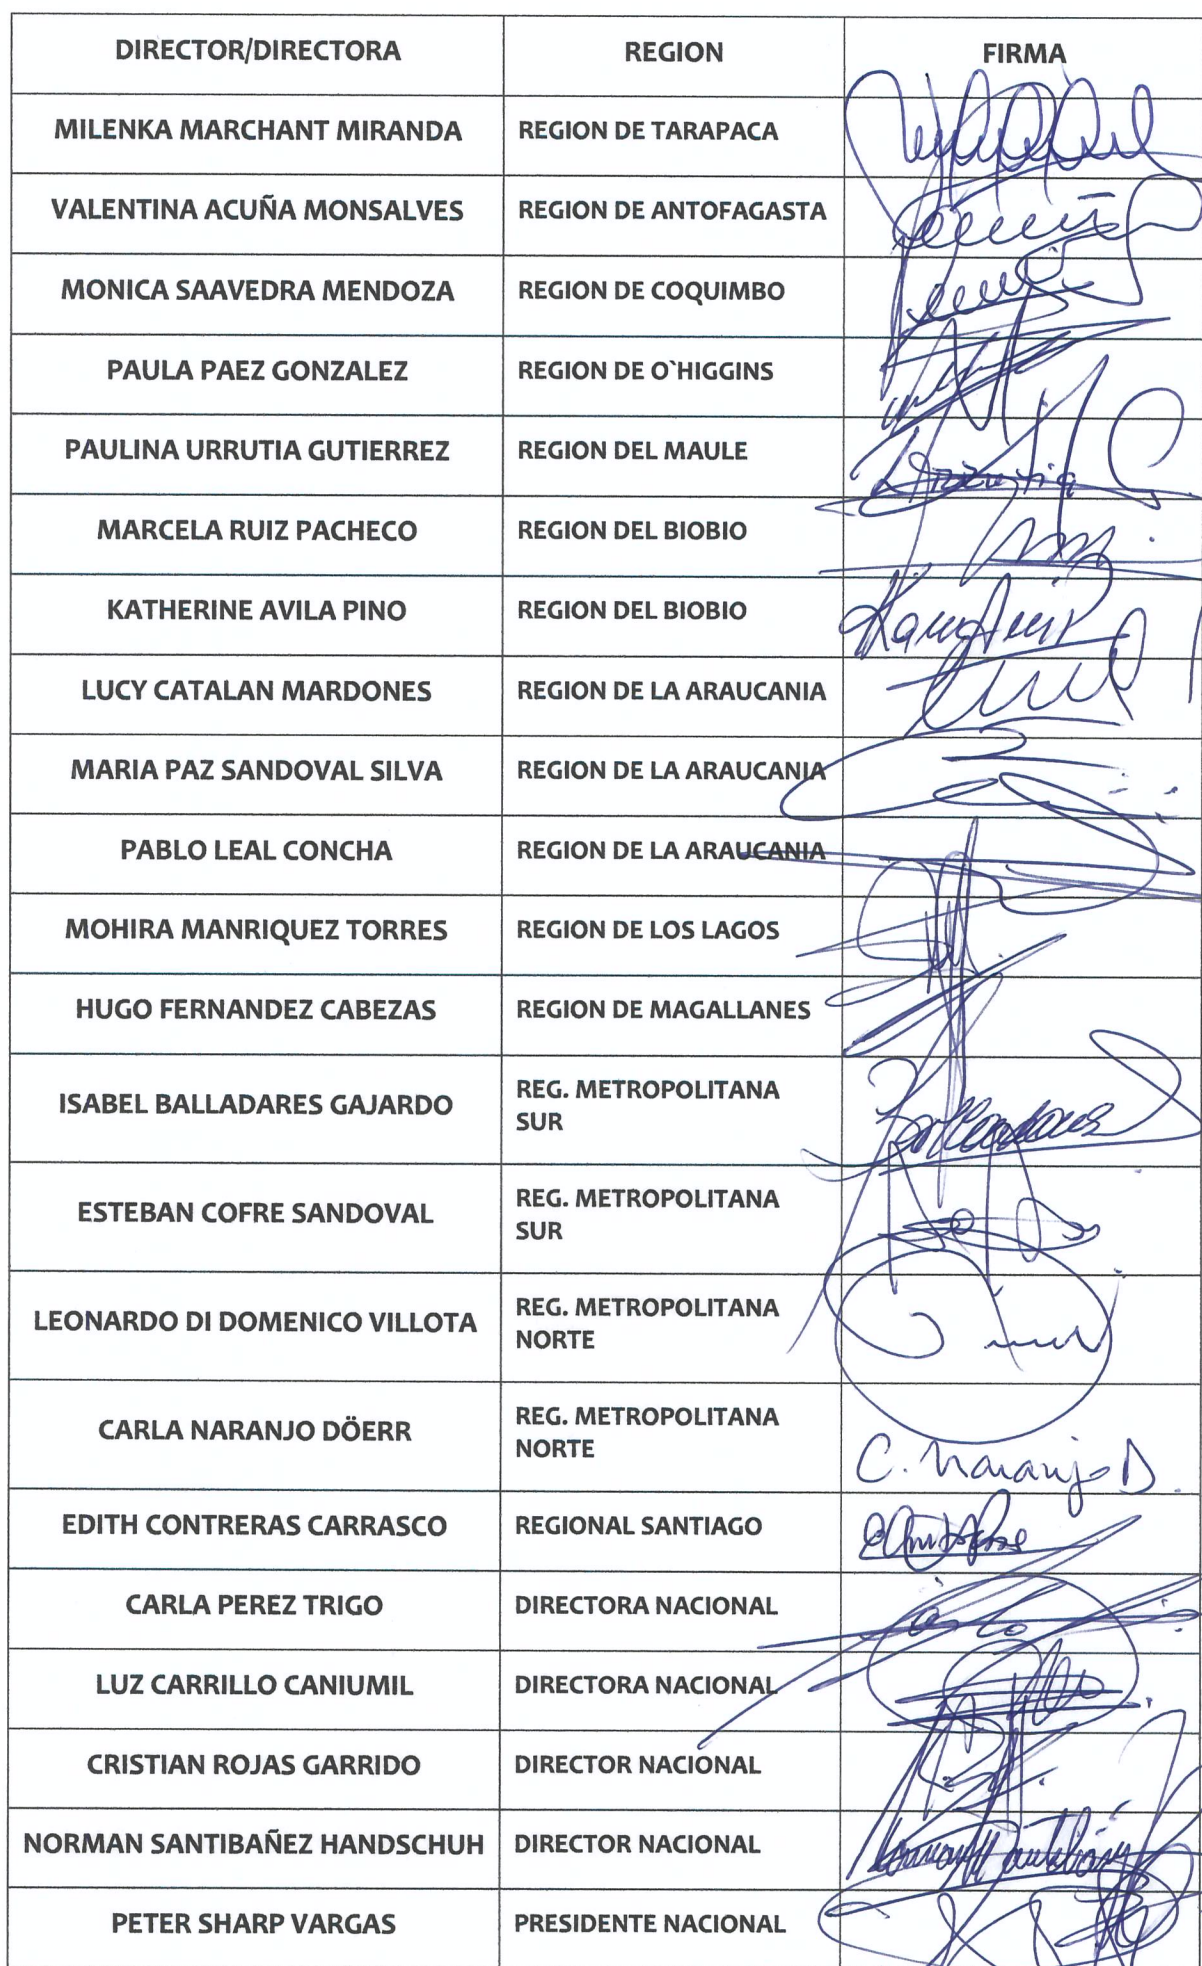 DIRECTOR/DIRECTORA REGION FIRMA
MILENKA MARCHANT MIRANDA REGION DE TARAPACA
VALENTINA ACUÑA MONSALVES REGION DE ANTOFAGASTA
MONICA SAAVEDRA MENDOZA REGION DE COQUIMBO
PAULA PAEZ GONZALEZ REGION DE O`HIGGINS
PAULINA URRUTIA GUTIERREZ REGION DEL MAULE
MARCELA RUIZ PACHECO REGION DEL BIOBIO
KATHERINE AVILA PINO REGION DEL BIOBIO
LUCY CATALAN MARDONES REGION DE LA ARAUCANIA
MARIA PAZ SANDOVAL SILVA REGION DE LA ARAUCANIA
PABLO LEAL CONCHA REGION DE LA ARAUCANIA
MOHIRA MANRIQUEZ TORRES REGION DE LOS LAGOS
HUGO FERNANDEZ CABEZAS REGION DE MAGALLANES
ISABEL BALLADARES GAJARDO REG. METROPOLITANA
SUR
ESTEBAN COFRE SANDOVAL REG. METROPOLITANA
SUR
LEONARDO DI DOMENICO VILLOTA REG. METROPOLITANA
NORTE
CARLA NARANJO DÖERR REG. METROPOLITANA
NORTE
C. Naranjo D.
EDITH CONTRERAS CARRASCO REGIONAL SANTIAGO
CARLA PEREZ TRIGO DIRECTORA NACIONAL
LUZ CARRILLO CANIUMIL DIRECTORA NACIONAL
CRISTIAN ROJAS GARRIDO DIRECTOR NACIONAL
NORMAN SANTIBAÑEZ HANDSCHUH DIRECTOR NACIONAL
PETER SHARP VARGAS PRESIDENTE NACIONAL